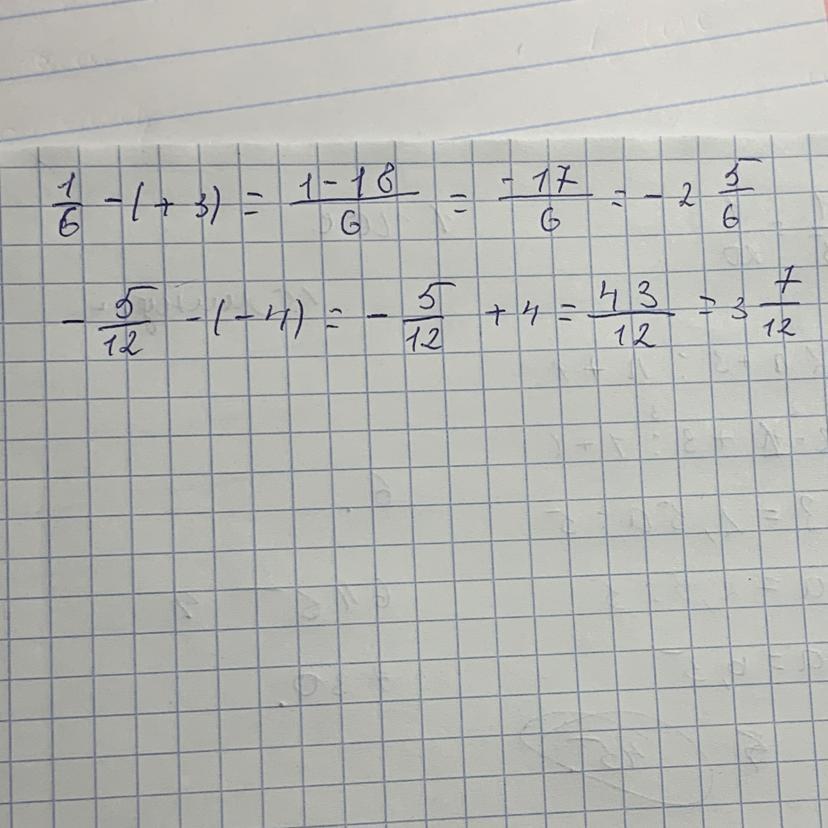 1/6 - (+3) = (1-18)/6 = -17/6 = -2 5/6
-5/12 - (-4) = -5/12 + 4 = 43/12 = 3 7/12